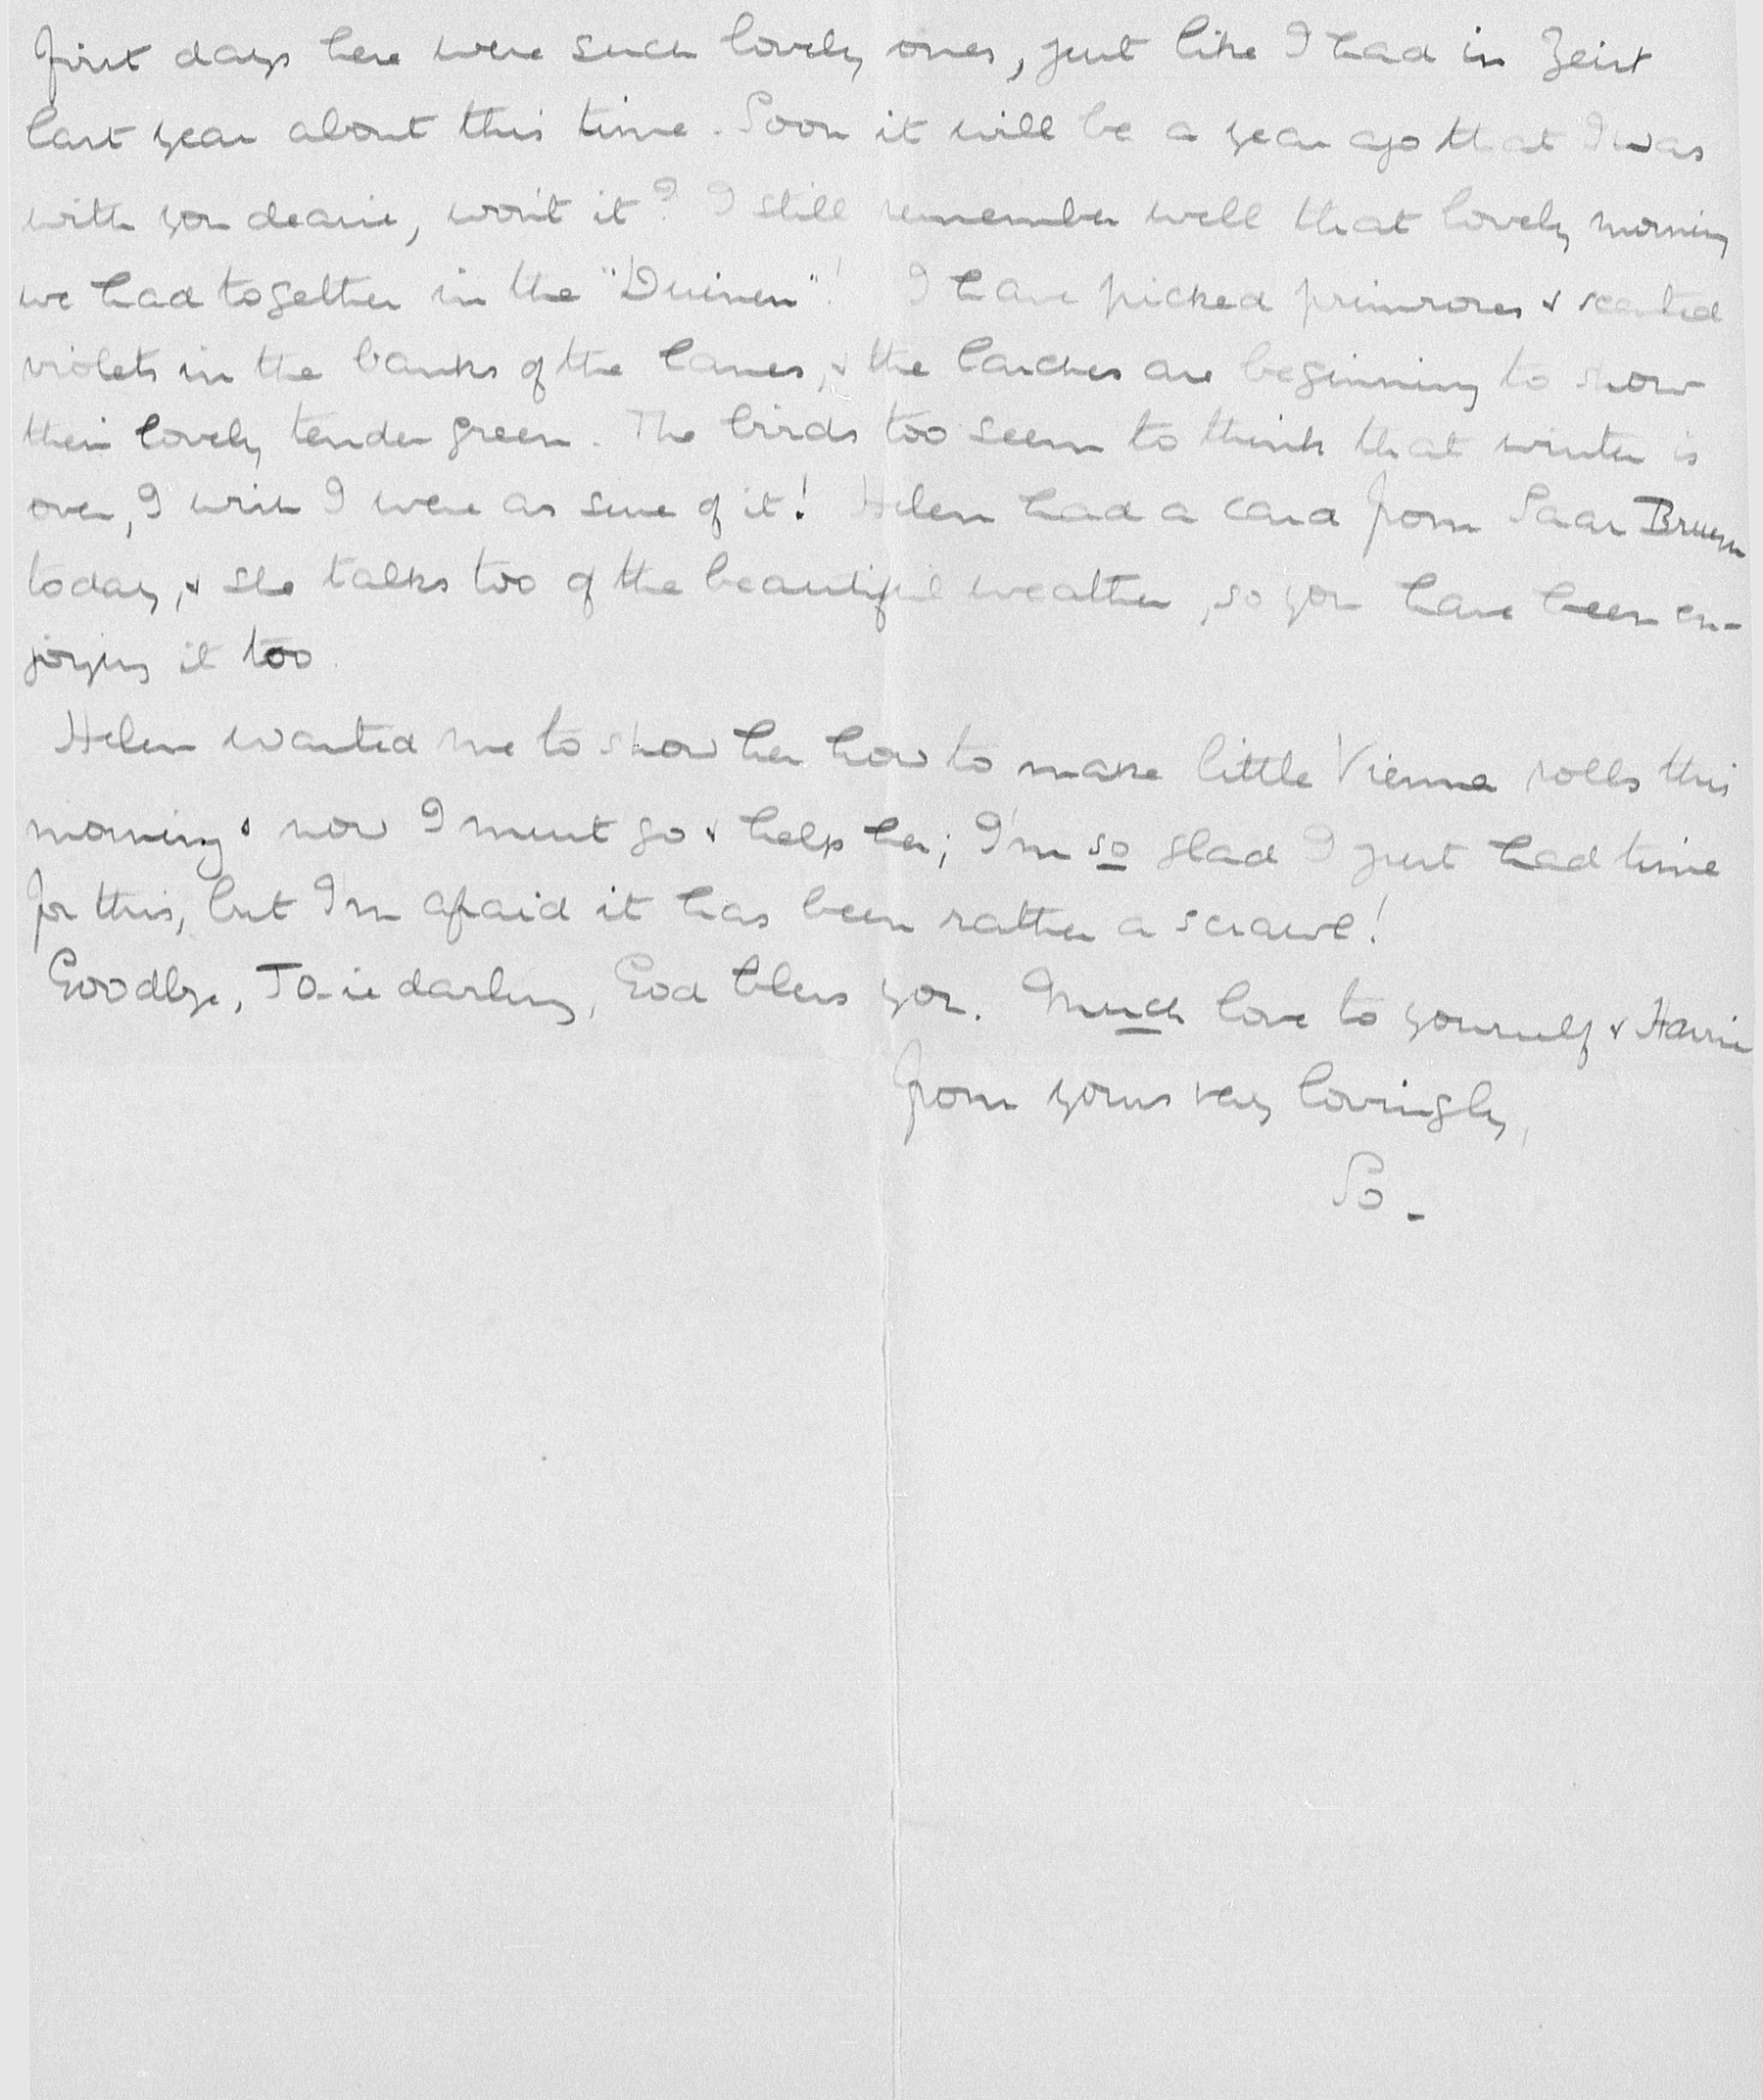 first days here were such lovely ones, just like I had in Zeist
last year about this time. Soon it will be a year ago that I was
with you dearie, won't it? I still remember well that lovely morning
we had together in the "Duinen"! I have picked primroses & scented
violets in the banks of the lanes, & the larches are beginning to show
their lovely tender green. The birds too seem to think that winter is
over, I wish I were as sure of it! Helen had a card from Saar Bruyn
today, & she talks too of the beautiful weather, so you have been en-
joying it too.
Helen wanted me to show her how to make little Vienna rolls this
morning & now I must go & help her; I'm so glad I just had time
for this, but I'm afraid it has been rather a scrawl!
Goodbye, darling, God bless you. Much love to yourself & Harrie
from yours very lovingly,
So-